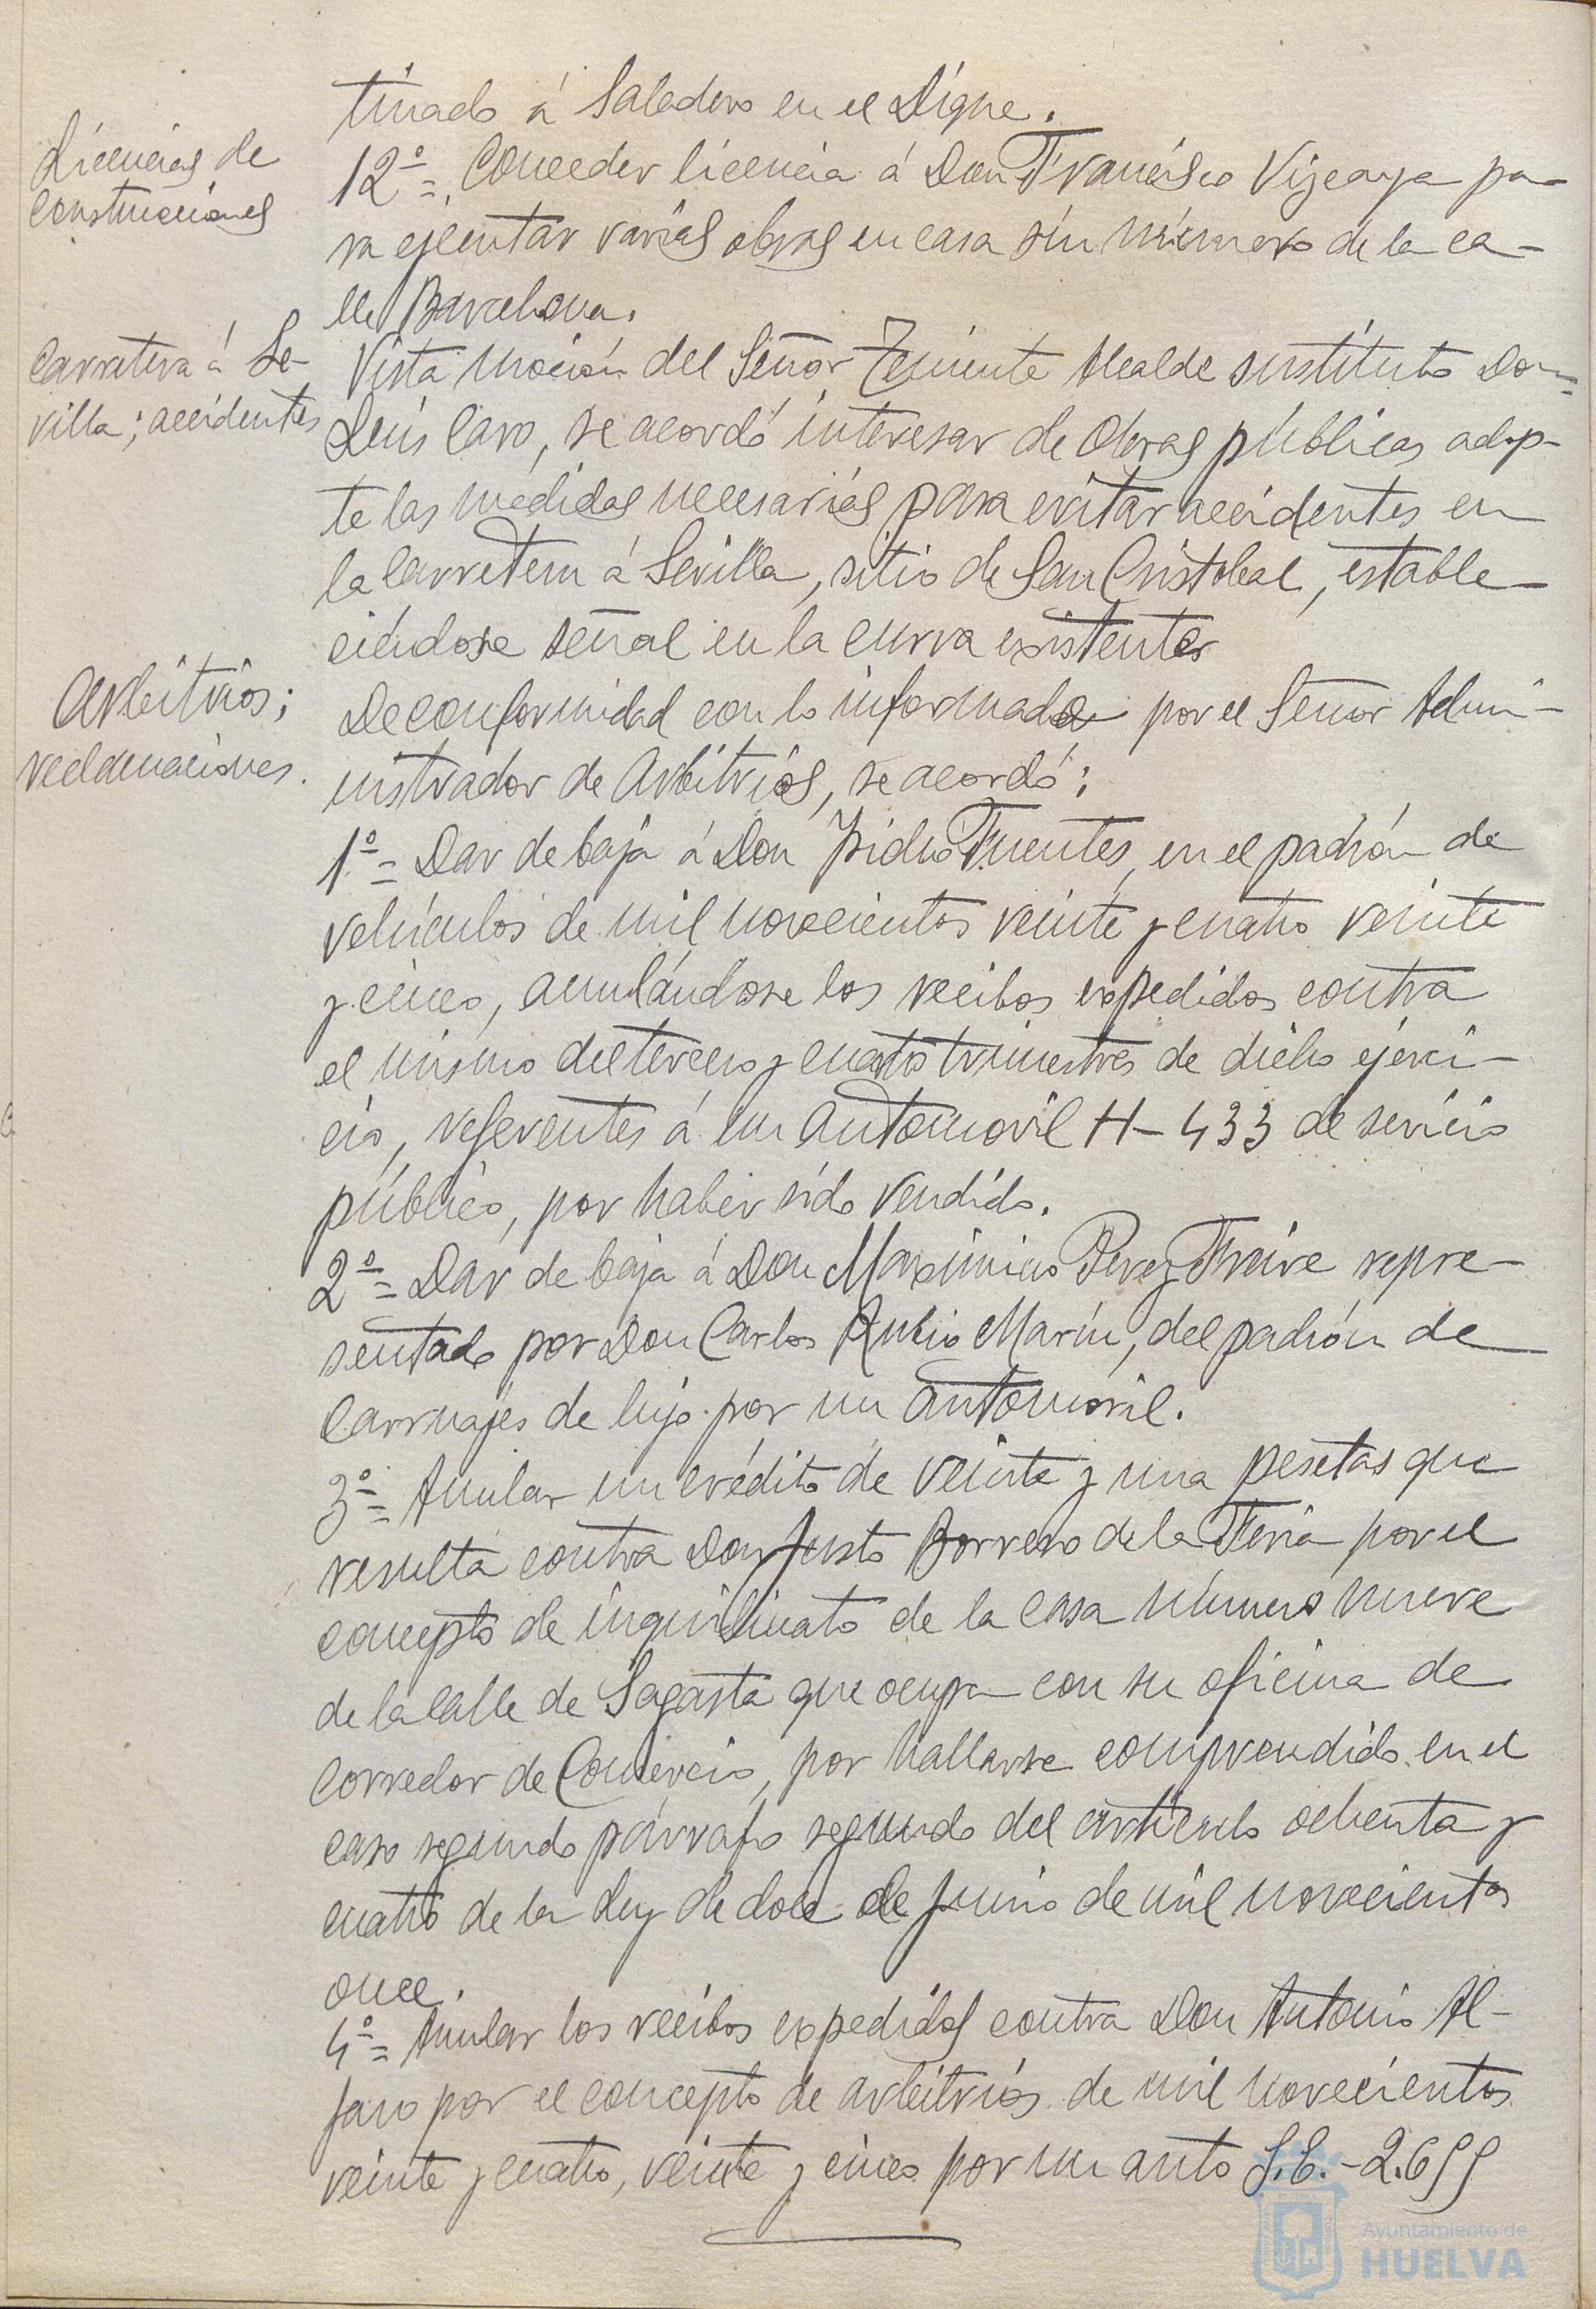 tinado á Saladero en el Dique.
Licencias de
construcciones
12º = Conceder licencia á Don Francisco Vizcaya pa-
ra ejecutar varias obras en casa sin número de la ca-
lle Barcelona.
Carretera á Se-
villa; accidentes
Vista moción del Señor Teniente Alcalde sustituto Don
Luis Caro, se acordó interesar de Obras públicas adop-
te las medidas necesarias para evitar accidentes en
la Carretera á Sevilla, sitio de San Cristobal, estable-
ciéndose señal en la curva existente
Arbitrios;
reclamaciones.
De conformidad con lo informado por el Señor Admi-
nistrador de Arbitrios, se acordó:
1º = Dar de baja á Don Isidro Fuentes, en el padrón de
vehículos de mil novecientos veinte y cuatro veinte
y cinco, anulándose los recibos expedidos contra
el mismo del tercero y cuarto trimestres de dicho ejerci-
cio, referentes á un automovil H-433 de servicio
público, por haber sido vendido.
2º = Dar de baja á Don Maximino Perez Fraire repre-
sentado por Don Carlos Rubio Marín, del padrón de
Carruajes de lujo por un automóvil.
3º = Anular un crédito de veinte y una pesetas que
resulta contra Don Justo Borrero de la Feria por el
concepto de inquilinato de la casa número nueve
de la calle de Sagasta que ocupa con su oficina de
Corredor de Comercio, por hallarse comprendido en el
caso segundo párrafo segundo del artículo ochenta y
cuatro de la Ley de doce de Junio de mil novecientos
once.
4º = Anular los recibos expedidos contra Don Antonio Al-
faro por el concepto de arbitrios de mil novecientos
veinte y cuatro, veinte y cinco por un auto S.E.-2.655
Ayuntamiento de
HUELVA